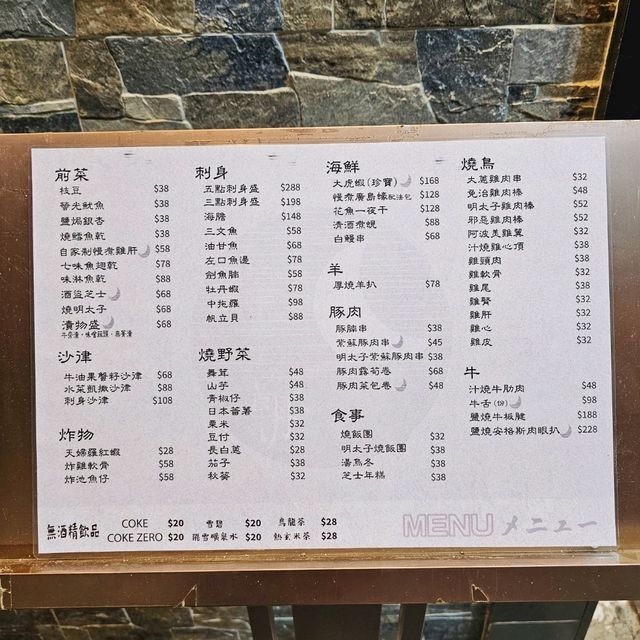 前菜
枝豆 $38
螢光魷魚 $38
鹽焗銀杏 $38
燒鱈魚乾 $38
自家制慢煮雞肝 $58
七味魚翅乾 $78
味淋魚乾 $88
酒盜芝士 $68
燒明太子 $68
漬物盛 $68
沙律
牛油果蟹籽沙律 $68
水菜凱撒沙律 $88
刺身沙律 $108
炸物
天婦羅紅蝦 $28
炸雞軟骨 $58
炸池魚仔 $58
刺身
五點刺身盛 $288
三點刺身盛 $198
海膽 $148
三文魚 $58
油甘魚 $68
左口魚邊 $78
劍魚腩 $58
牡丹蝦 $78
中拖羅 $98
帆立貝 $88
燒野菜
舞茸 $48
山芋 $48
青椒仔 $38
日本蕃薯 $38
粟米 $32
豆付 $32
長白蔥 $28
茄子 $38
秋葵 $32
海鮮
大虎蝦(珍寶) $168
慢煮廣島蠔配法包 $128
花魚一夜干 $128
清酒煮蜆 $88
白鱔串 $68
羊
厚燒羊扒 $78
豚肉
豚腩串 $38
紫蘇豚肉串 $45
明太子紫蘇豚肉串 $38
豚肉露筍卷 $68
豚肉菜包卷 $48
食事
燒飯團 $32
明太子燒飯團 $38
湯烏冬 $38
芝士年糕 $38
燒鳥
大蔥雞肉串 $32
免治雞肉棒 $48
明太子雞肉棒 $52
邪惡雞肉棒 $52
阿波羨雞翼 $32
汁燒雞心頂 $38
雞頸肉 $38
雞軟骨 $32
雞尾 $38
雞腎 $32
雞肝 $32
雞心 $32
雞皮 $32
牛
汁燒牛肋肉 $48
牛舌(份) $98
鹽燒牛板腱 $188
鹽燒安格斯肉眼扒 $228
無酒精飲品
COKE $20 雪碧 $20 烏龍茶 $28
COKE ZERO $20 飛雪礦泉水 $20 熱玄米茶 $28
MENU メニュー